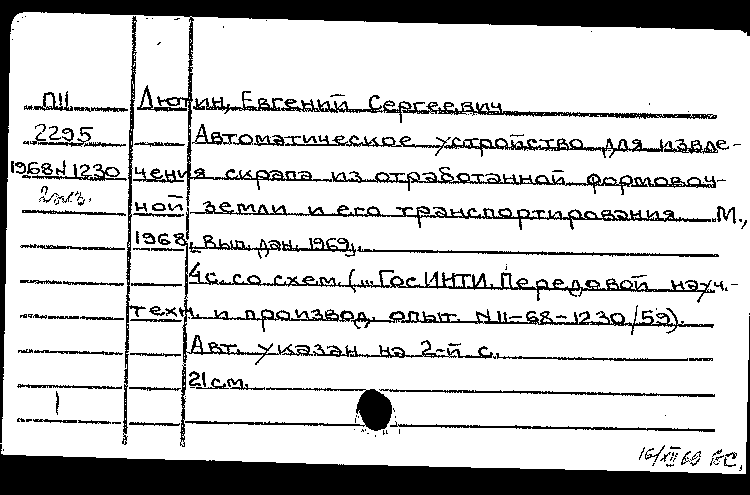 П11 Лютин, Евгений Сергеевич
2295 Автоматическое устройство для извле-
1968 N 1230 чения скрапа из отработанной формовоч-
2 экз. ной земли и его транспортирования. М.,
1968, вып. дан. 1969.
4 с. со схем. (... ГосИНТИ. Передовой науч.-
техн. и производ. опыт. N 11-68-1230/59).
Авт. указан на 2-й с.
21 см.
1
16/XII 69 ВС.